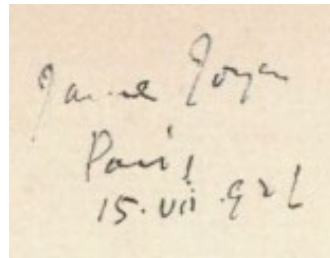 James Joyce
Paris
15.vii.926